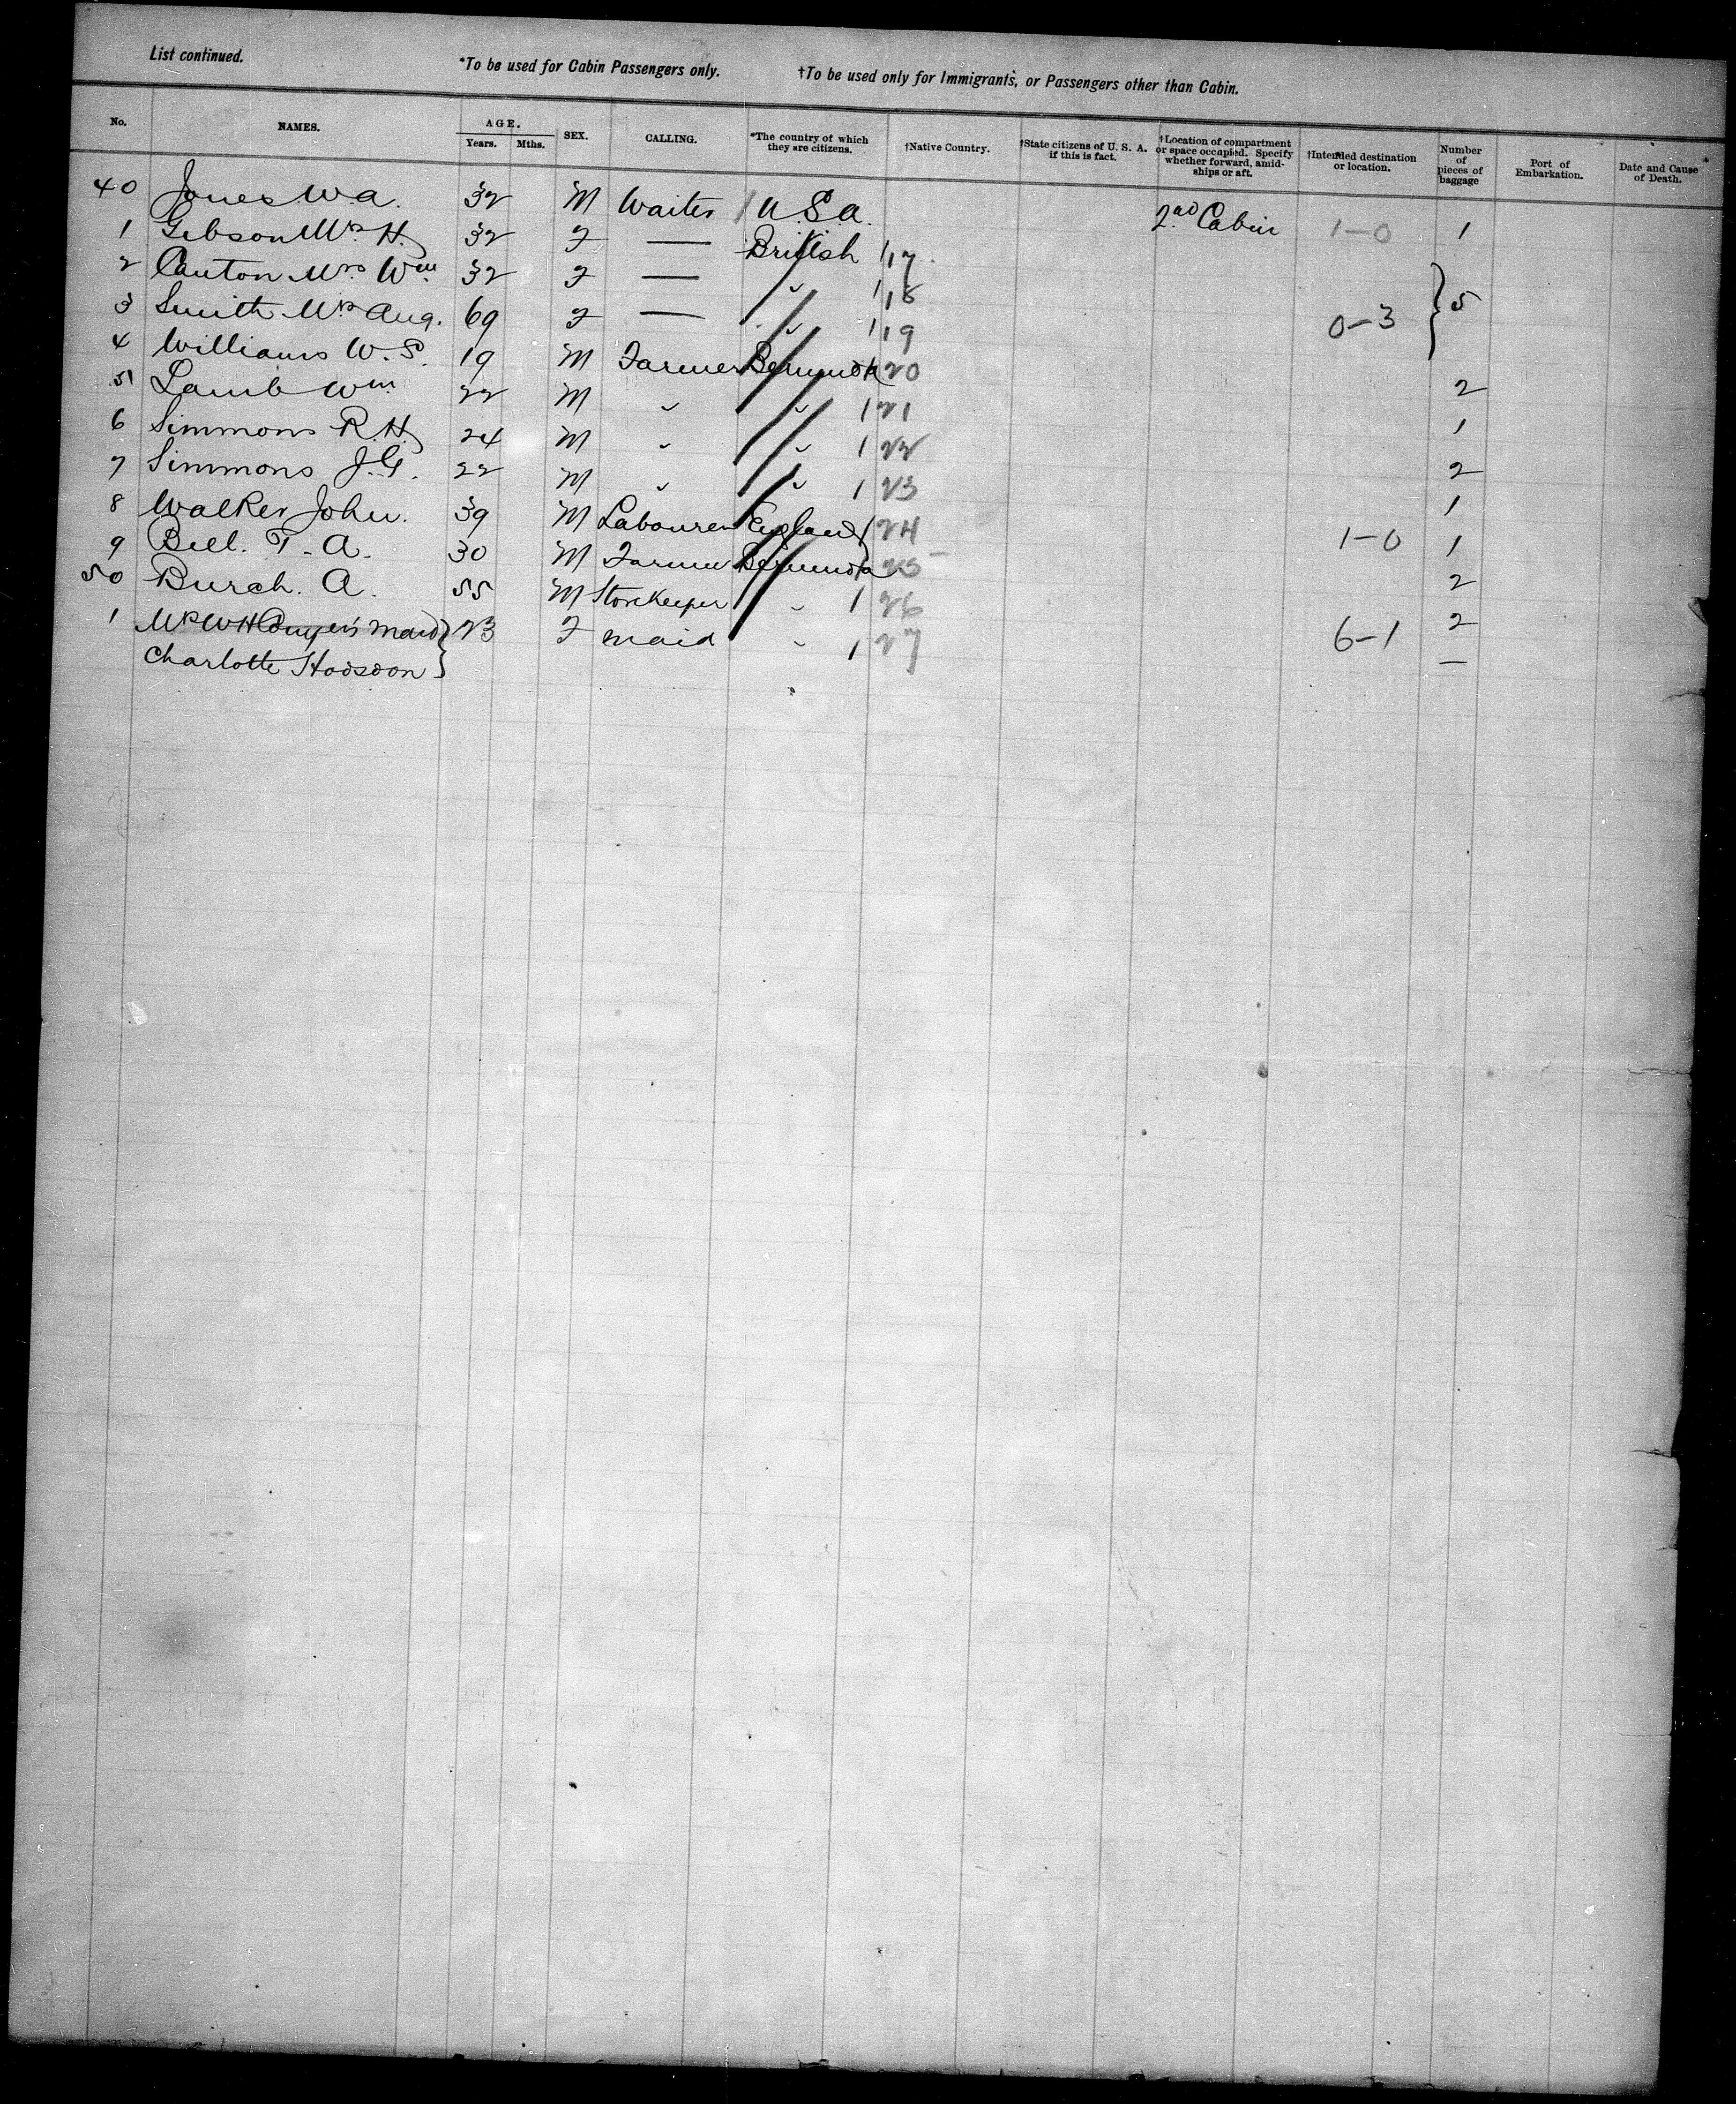 List continued. *To be used for Cabin Passengers only. †To be used only for Immigrants, or Passengers other than Cabin.
No. NAMES. AGE. Years. Mths. SEX. CALLING. *The country of which they are citizens. †Native Country. †State citizens of U. S. A. if this is fact. †Location of compartment or space occupied. Specify whether forward, amidships or aft. †Intended destination or location. Number of pieces of baggage Port of Embarkation. Date and Cause of Death.
40 Jones W.A. 32 M Waiter U.S.A. 2nd Cabin 1-0 1
1 Gibson Mrs H. 32 F — British 1 17
2 Mrs Wm 32 F — " 1 18
3 Smith Mrs Aug. 69 F — " 1 19 0-3 } 5
4 Williams W.S. 19 M Farmer Bermuda 1 20
5 Lamb Wm 22 M " " 1 21 2
6 Simmons R.H. 24 M " " 1 22 1
7 Simmons J.G. 22 M " " 1 23 2
8 Walker John. 39 M Labourer England 1 24 1-0 1
9 Bell. T. A. 30 M Farmer Bermuda 1 25 1
50 Burch. A. 55 M Storekeeper " 1 26 2
1 Mrs W H maid } 23 F maid " 1 27 6-1 2
Charlotte Hodsdon } —